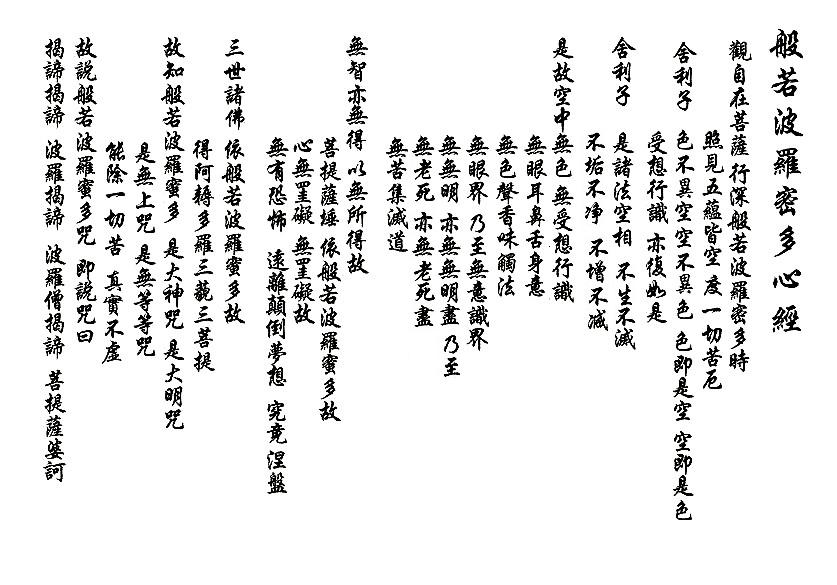 般若波羅密多心經
觀自在菩薩 行深般若波羅密多時
照見五蘊皆空 度一切苦厄
舍利子 色不異空 空不異色 色即是空 空即是色
受想行識 亦復如是
舍利子 是諸法空相 不生不滅
不垢不净 不增不减
是故空中無色 無受想行識
無眼耳鼻舌身意
無色聲香味觸法
無眼界 乃至無意識界
無無明 亦無無明盡 乃至
無老死 亦無老死盡
無苦集滅道
無智亦無得 以無所得故
菩提薩埵 依般若波羅蜜多故
心無罣礙 無罣礙故
無有恐怖 遠離顛倒夢想 究竟涅盤
三世諸佛 依般若波羅蜜多故
得阿耨多羅三藐三菩提
故知般若波羅蜜多 是大神咒 是大明咒
是無上咒 是無等等咒
能除一切苦 真實不虛
故説般若波羅蜜多咒 即説咒曰
揭諦揭諦 波羅揭諦 波羅僧揭諦 菩提薩婆訶